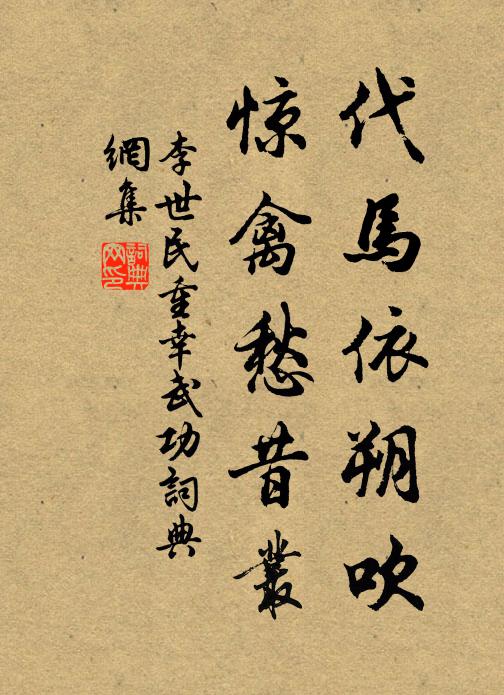 代馬依朔吹
惊禽愁昔叢
李世民重幸武功詞典
網集
詞典
网印